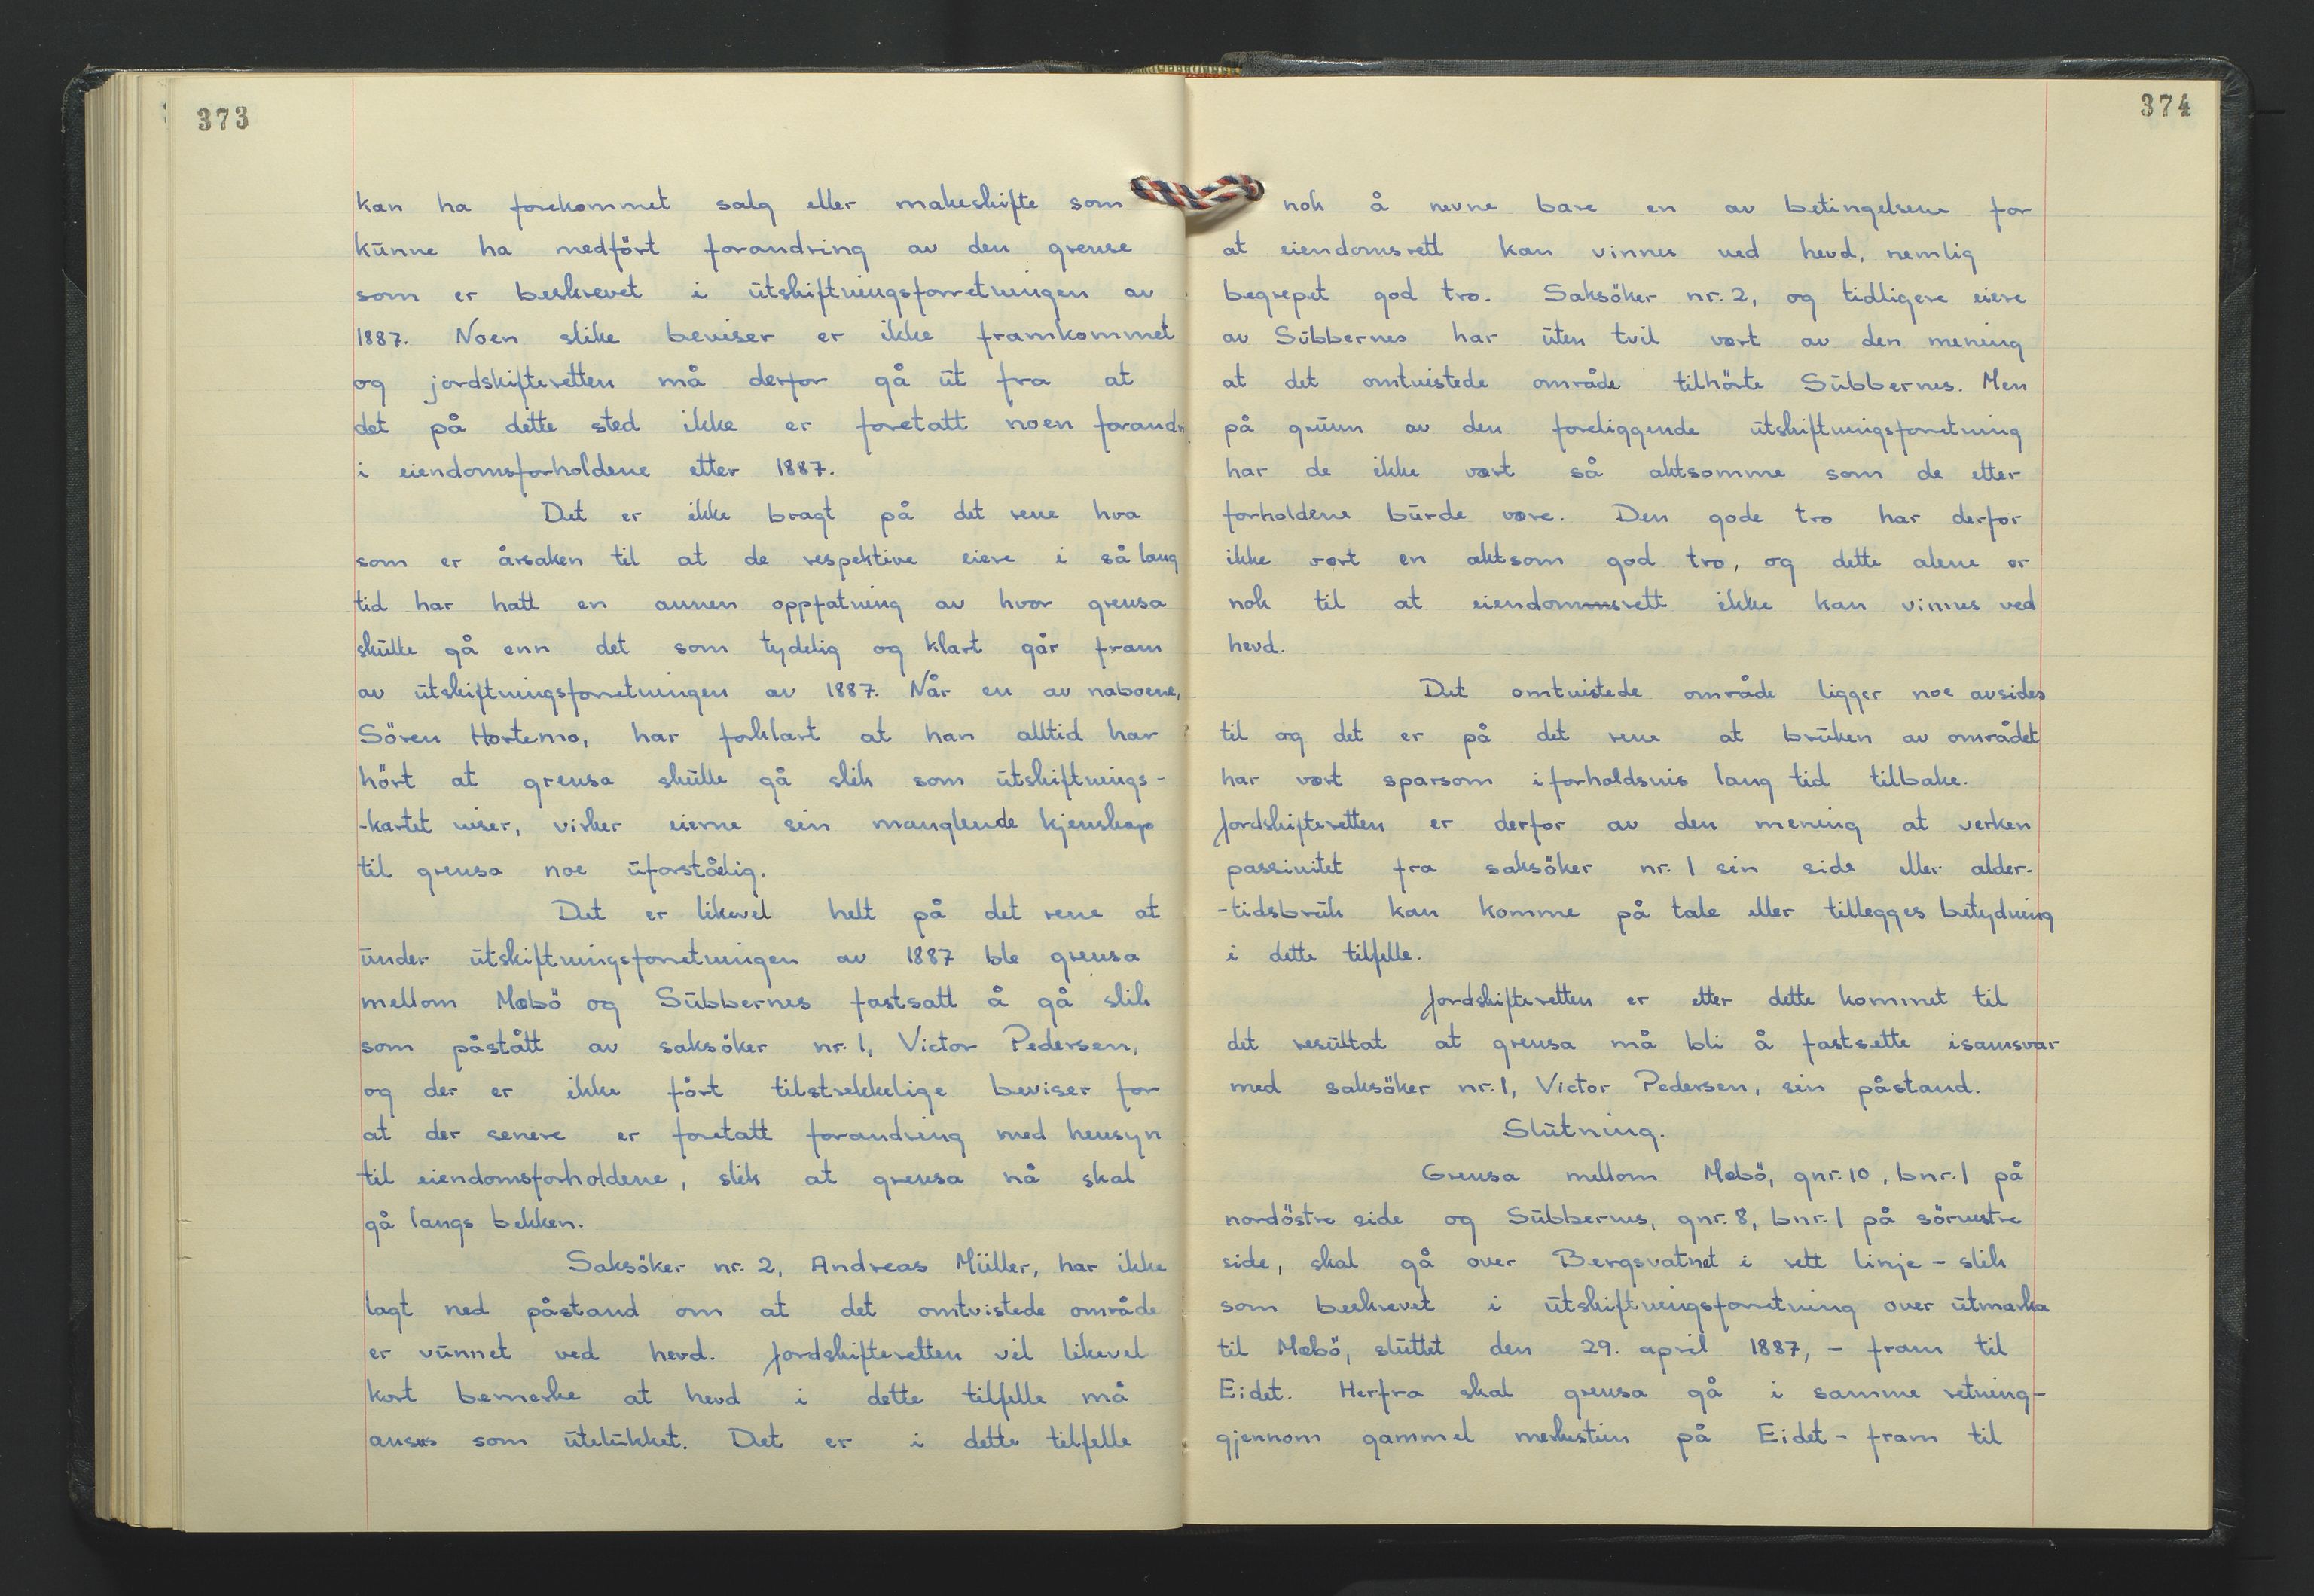 373
kan ha forekommet salg eller makeskifte som
kunne ha medfört forandring av den grense
som er beskrevet i utskiftningsforretningen av
1887. Noen slike beviser er ikke framkommet
og jordskifteretten må derfor gå ut fra at
det på dette sted ikke er foretatt noen forandr
i eiendomsforholdene etter 1887.
Det er ikke bragt på det rene hva
som er årsaken til at de respektive eiere i så lang
tid har hatt en annen oppfatning av hvor grensa
skulle gå enn det som tydelig og klart går fram
av utskiftningsforretningen av 1887. Når en av naboene,
Sören Hortemo, har forklart at han alltid har
hört at grensa skulle gå slik som utskiftnings-
-kartet viser, virker eierne sin manglende kjenskap
til grensa noe uforståelig.
Det er likevel helt på det rene at
under utskiftningsforretningen av 1887 ble grensa
mellom Mæbö og Subbernes fastsatt å gå slik
som påstått av saksöker nr. 1, Victor Pedersen,
og der er ikke fört tilstrekkelige beviser for
at der senere er foretatt forandring med hensyn
til eiendomsforholdene, slik at grensa nå skal
gå langs bekken.
Saksöker nr. 2, Andreas Müller, har ikke
lagt ned påstand om at det omtvistede område
er vunnet ved hevd. Jordskifteretten vil likevel
kort bemerke at hevd i dette tilfelle må
anses som utelukket. Det er i dette tilfelle
374
nok å nevne bare en av betingelsene for
at eiendomsrett kan vinnes ved hevd, nemlig
begrepet god tro. Saksöker nr. 2, og tidligere eiere
av Subbernes har uten tvil vært av den mening
at det omtvistede område tilhörte Subbernes. Men
på grunn av den foreliggende utskiftningsforretning
har de ikke vært så aktsomme som de etter
forholdene burde være. Den gode tro har derfor
ikke vært en aktsom god tro, og dette alene er
nok til at eiendomsrett ikke kan vinnes ved
hevd.
Det omtvistede område ligger noe avsides
til og det er på det rene at bruken av området
har vært sparsom i forholdsvis lang tid tilbake.
Jordskifteretten er derfor av den mening at verken
passivitet fra saksöker nr. 1 sin side eller alder-
-tidsbruk kan komme på tale eller tillegges betydning
i dette tilfelle.
Jordskifteretten er etter dette kommet til
det resultat at grensa må bli å fastsette i samsvar
med saksöker nr. 1, Victor Pedersen, sin påstand.
Slutning.
Grensa mellom Mæbö, gnr. 10, bnr. 1 på
nordöstre side og Subbernes, gnr. 8, bnr. 1 på sörvestre
side, skal gå over Bergsvatnet i rett linje - slik
som beskrevet i utskiftningsforretning over utmarka
til Mæbö, sluttet den 29. april 1887, - fram til
Eidet. Herfra skal grensa gå i samme retning -
gjennom gammel merkestein på Eidet - fram til